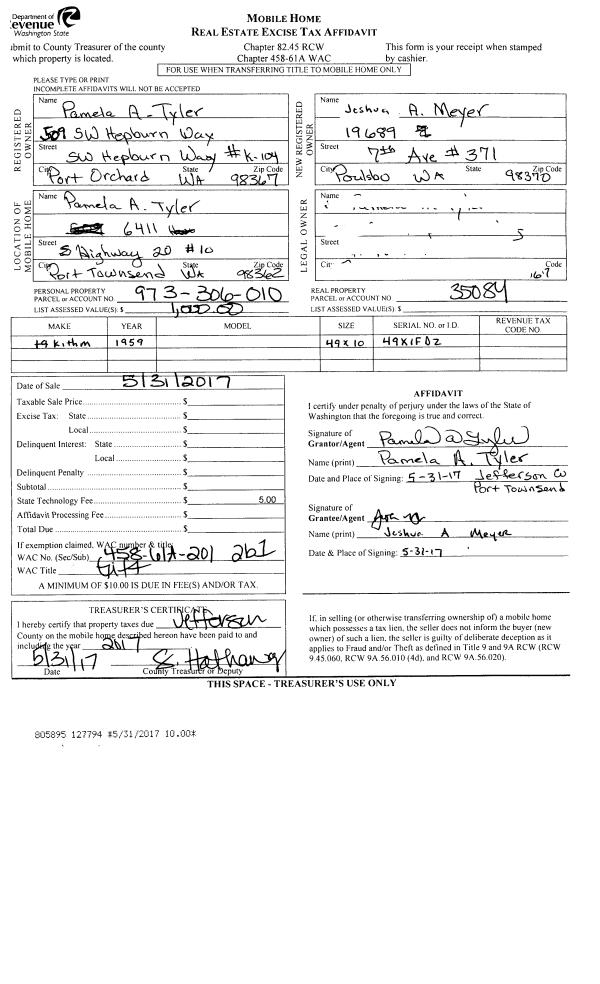 Department of
evenue
Washington State
MOBILE HOME
REAL ESTATE EXCISE TAX AFFIDAVIT
bmit to County Treasurer of the county
which property is located.
Chapter 82.45 RCW
Chapter 458-61A WAC
This form is your receipt when stamped
by cashier.
FOR USE WHEN TRANSFERRING TITLE TO MOBILE HOME ONLY
PLEASE TYPE OR PRINT
INCOMPLETE AFFIDAVITS WILL NOT BE ACCEPTED
REGISTERED OWNER
Name Pamela A. Tyler
509 SW Hepburn Way
Street SW Hepburn Way #K-104
City State Zip Code
Port Orchard WA 98367
NEW REGISTERED OWNER
Name Jeshua A. Meyer
19689
Street 7th Ave #371
City State Zip Code
Poulsbo WA 98370
LOCATION OF MOBILE HOME
Name Pamela A. Tyler
6411
Street S Highway 20 #10
City State Zip Code
Port Townsend WA 98362
LEGAL OWNER
Name
Street
Code
PERSONAL PROPERTY
PARCEL or ACCOUNT NO. 973-306-010
LIST ASSESSED VALUE(S): $ 1,000.00
REAL PROPERTY
PARCEL or ACCOUNT NO. 35084
LIST ASSESSED VALUE(S): $
MAKE YEAR MODEL SIZE SERIAL NO. or I.D. REVENUE TAX CODE NO.
1959 49X10 49X1FDZ
Date of Sale 5/31/2017
Taxable Sale Price $
Excise Tax: State $
Local $
Delinquent Interest: State $
Local $
Delinquent Penalty $
Subtotal $
State Technology Fee $ 5.00
Affidavit Processing Fee $
Total Due $
If exemption claimed, WAC number & title:
WAC No. (Sec/Sub) 458-61A-201 2b1
WAC Title Gift
A MINIMUM OF $10.00 IS DUE IN FEE(S) AND/OR TAX.
AFFIDAVIT
I certify under penalty of perjury under the laws of the State of
Washington that the foregoing is true and correct.
Signature of
Grantor/Agent Pamela A Tyler
Name (print) Pamela A. Tyler
Date and Place of Signing: 5-31-17 Jefferson Co
Port Townsend
Signature of
Grantee/Agent
Name (print) Jeshua A Meyer
Date & Place of Signing: 5-31-17
TREASURER'S CERTIFICATE
I hereby certify that property taxes due Jefferson
County on the mobile home described hereon have been paid to and
including the year 2017
5/31/17 S. Hathaway
Date County Treasurer or Deputy
If, in selling (or otherwise transferring ownership of) a mobile home
which possesses a tax lien, the seller does not inform the buyer (new
owner) of such a lien, the seller is guilty of deliberate deception as it
applies to Fraud and/or Theft as defined in Title 9 and 9A RCW (RCW
9.45.060, RCW 9A.56.010 (4d), and RCW 9A.56.020).
THIS SPACE - TREASURER'S USE ONLY
805895 127794 #5/31/2017 10.00*